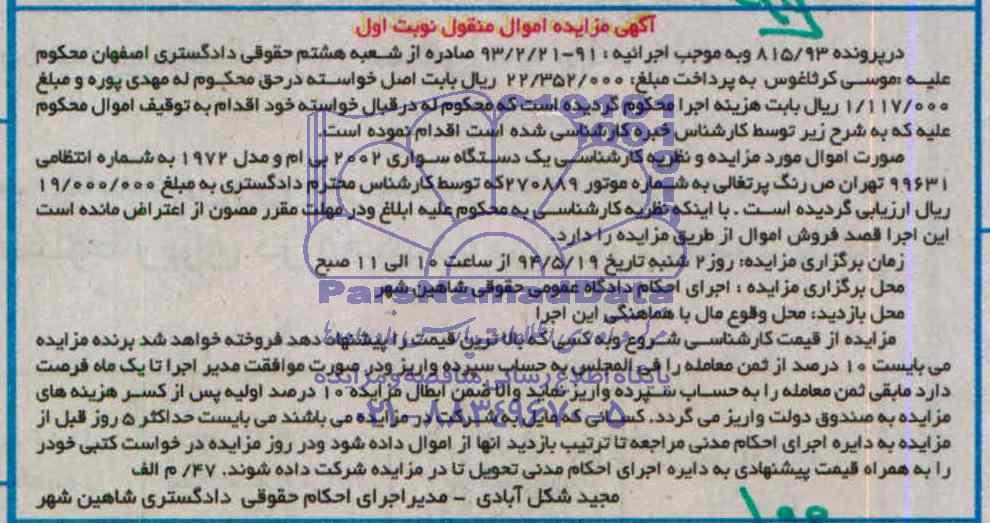 آگهی مزایده اموال منقول نوبت اول
درپرونده ۸۱۵/۹۳ وبه موجب اجرائیه : ۹۱-۹۳/۲/۲۱ صادره از شعبه هشتم حقوقی دادگستری اصفهان محکوم
علیه :موسی کرثاغوس به پرداخت مبلغ: ۲۲/۳۵۲/۰۰۰ ریال بابت اصل خواسته درحق محکوم له مهدی پوره و مبلغ
۱/۱۱۷/۰۰۰ ریال بابت هزینه اجرا محکوم گردیده است که محکوم له درقبال خواسته خود اقدام به توقیف اموال محکوم
علیه که به شرح زیر توسط کارشناس خبره کارشناسی شده است اقدام نموده است.
صورت اموال مورد مزایده و نظریه کارشناسی یک دستگاه سواری ۲۰۰۲ بی ام و مدل ۱۹۷۲ به شماره انتظامی
۹۹۶۳۱ تهران ص رنگ پرتغالی به شماره موتور ۲۷۰۸۸۹که توسط کارشناس محترم دادگستری به مبلغ ۱۹/۰۰۰/۰۰۰
ریال ارزیابی گردیده است . با اینکه نظریه کارشناسی به محکوم علیه ابلاغ ودر مهلت مقرر مصون از اعتراض مانده است
این اجرا قصد فروش اموال از طریق مزایده را دارد.
زمان برگزاری مزایده: روز۲ شنبه تاریخ ۹۴/۵/۱۹ از ساعت ۱۰ الی ۱۱ صبح
محل برگزاری مزایده : اجرای احکام دادگاه عمومی حقوقی شاهین شهر
ParsNamadData
محل بازدید: محل وقوع مال با هماهنگی این اجرا
مزایده از قیمت کارشناسی شروع وبه کسی که بالاترین قیمت را پیشنهاد دهد فروخته خواهد شد برنده مزایده
می بایست ۱۰ درصد از ثمن معامله را فی المجلس به حساب سپرده واریز ودر صورت موافقت مدیر اجرا تا یک ماه فرصت
پایگاه اطلاع رسانی مناقصه و مزایده
دارد مابقی ثمن معامله را به حساب سپرده واریز نماید والا ضمن ابطال مزایده ۱۰ درصد اولیه پس از کسر هزینه های
۰۲۱-۸۸۳۴۹۶۷۰-۵
مزایده به صندوق دولت واریز می گردد. کسانی که مایل به شرکت در مزایده می باشند می بایست حداکثر ۵ روز قبل از
مزایده به دایره اجرای احکام مدنی مراجعه تا ترتیب بازدید انها از اموال داده شود ودر روز مزایده در خواست کتبی خودر
را به همراه قیمت پیشنهادی به دایره اجرای احکام مدنی تحویل تا در مزایده شرکت داده شوند. ۴۷/ م الف
مجید شکل آبادی - مدیراجرای احکام حقوقی دادگستری شاهین شهر